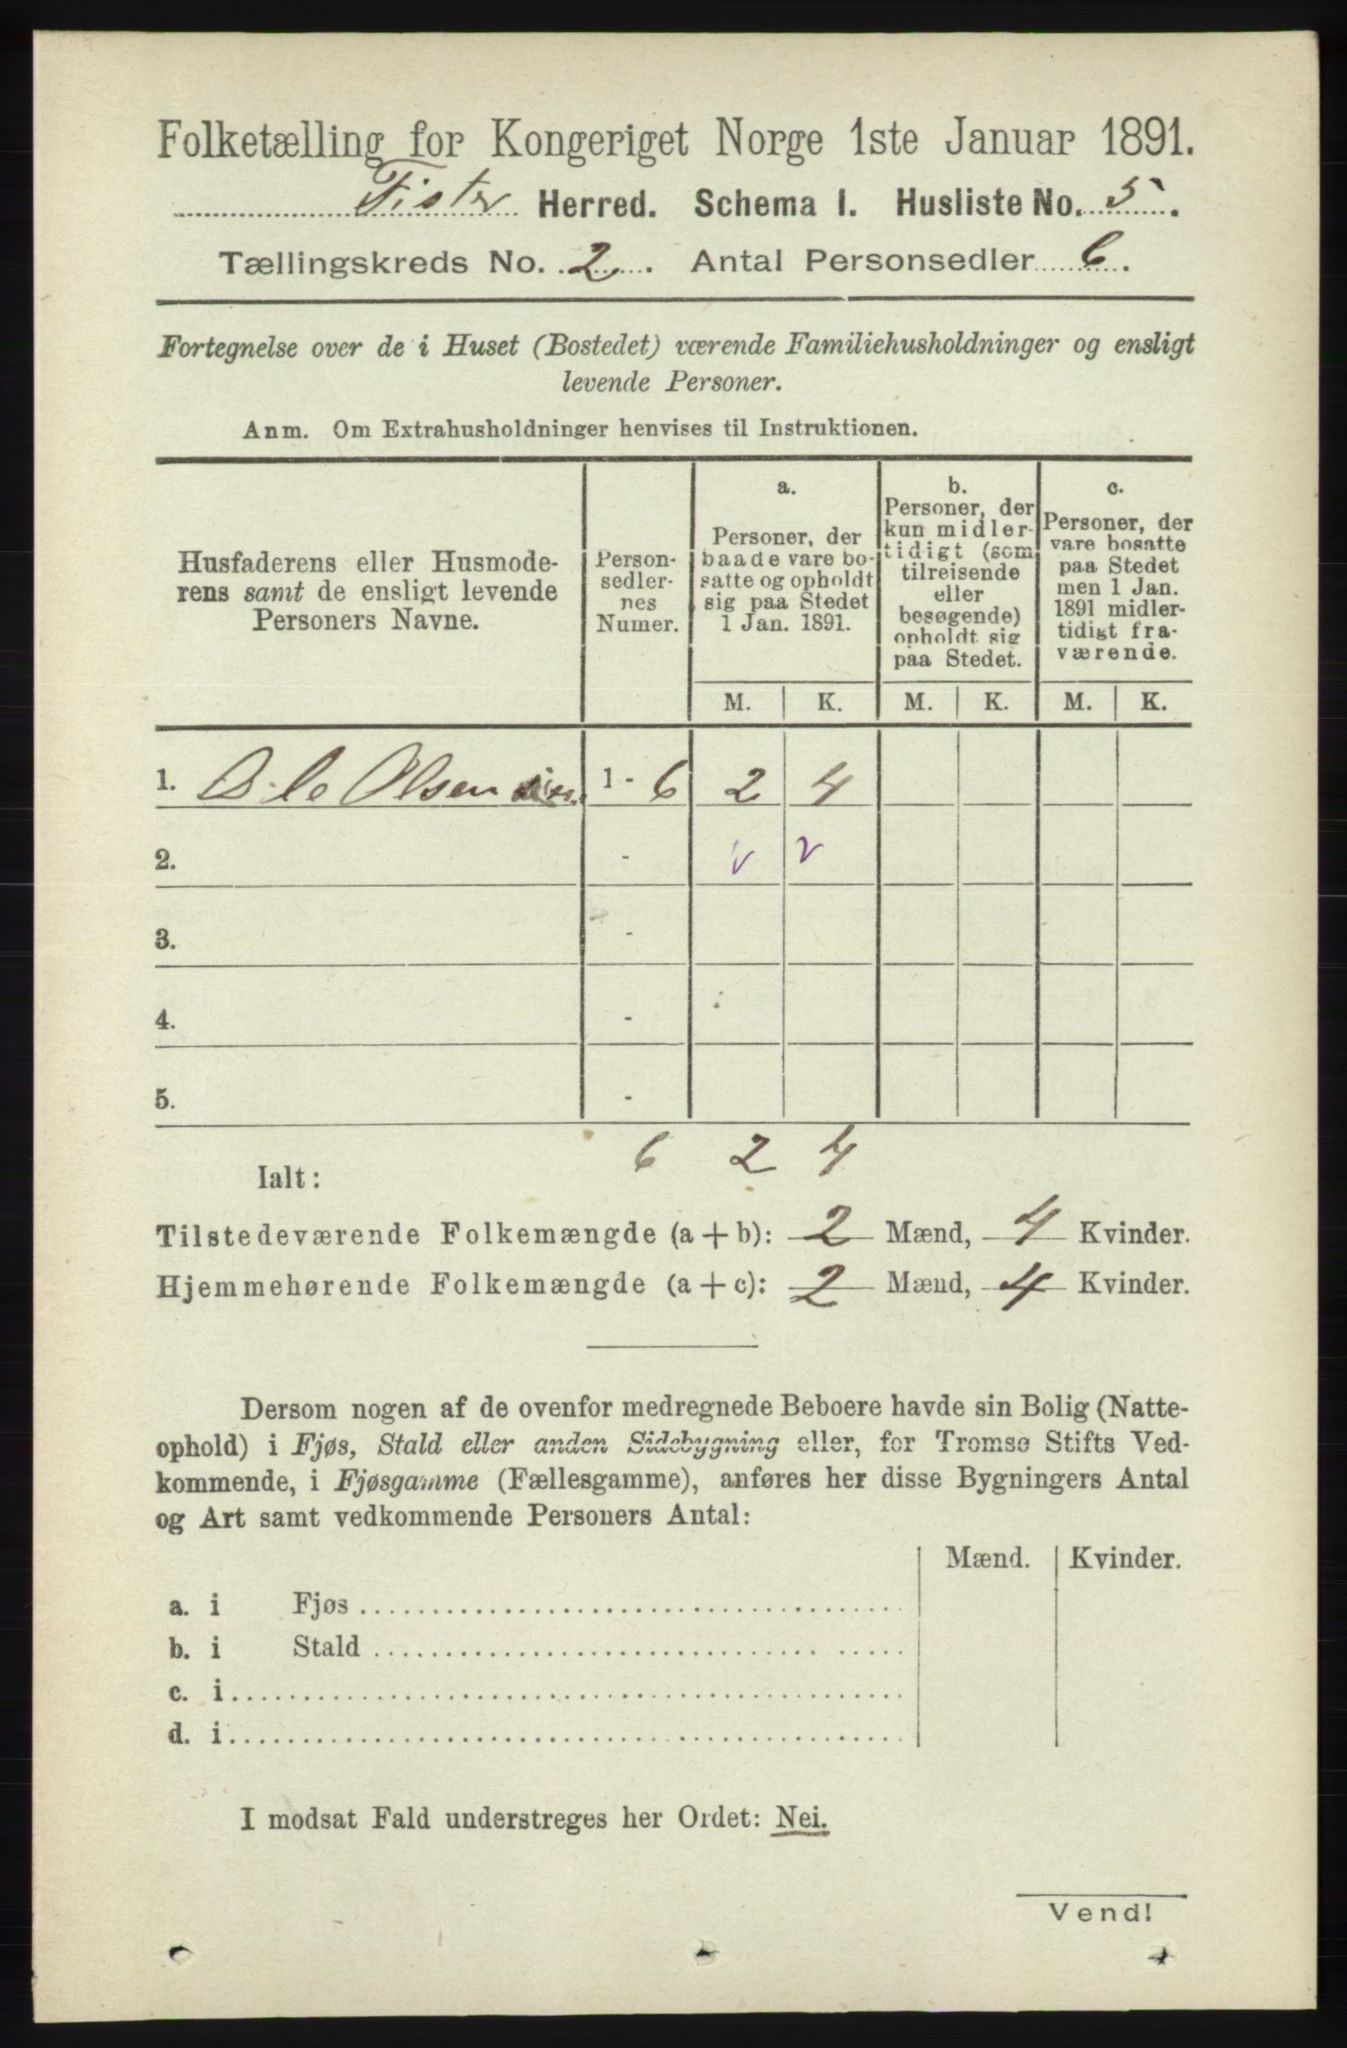 Folketælling for Kongeriget Norge 1ste Januar 1891.
Fister Herred. Schema I. Husliste No. 5.
Tællingskreds No. 2. Antal Personsedler 6.
Fortegnelse over de i Huset (Bostedet) værende Familiehusholdninger og ensligt
levende Personer.
Anm. Om Extrahusholdninger henvises til Instruktionen.
Husfaderens eller Husmode-
rens samt de ensligt levende
Personers Navne.
Person-
sedler-
nes
Numer.
a.
Personer, der
baade vare bo-
satte og opholdt
sig paa Stedet
1 Jan. 1891.
b.
Personer, der
kun midler-
tidigt (som
tilreisende
eller
besøgende)
opholdt sig
paa Stedet.
c.
Personer, der
vare bosatte
paa Stedet
men 1 Jan.
1891 midler-
tidigt fra-
værende.
M. K. M. K. M. K.
1. Ole Olsen 1 - 6 2 4
2. - v v
3. -
4. -
5. -
6 2 4
Ialt:
Tilstedeværende Folkemængde (a + b): 2 Mænd, 4 Kvinder.
Hjemmehørende Folkemængde (a + c): 2 Mænd, 4 Kvinder.
Dersom nogen af de ovenfor medregnede Beboere havde sin Bolig (Natte-
ophold) i Fjøs, Stald eller anden Sidebygning eller, for Tromsø Stifts Ved-
kommende, i Fjøsgamme (Fællesgamme), anføres her disse Bygningers Antal
og Art samt vedkommende Personers Antal:
Mænd. Kvinder.
a. i Fjøs
b. i Stald
c. i
d. i
I modsat Fald understreges her Ordet: Nei.
Vend!